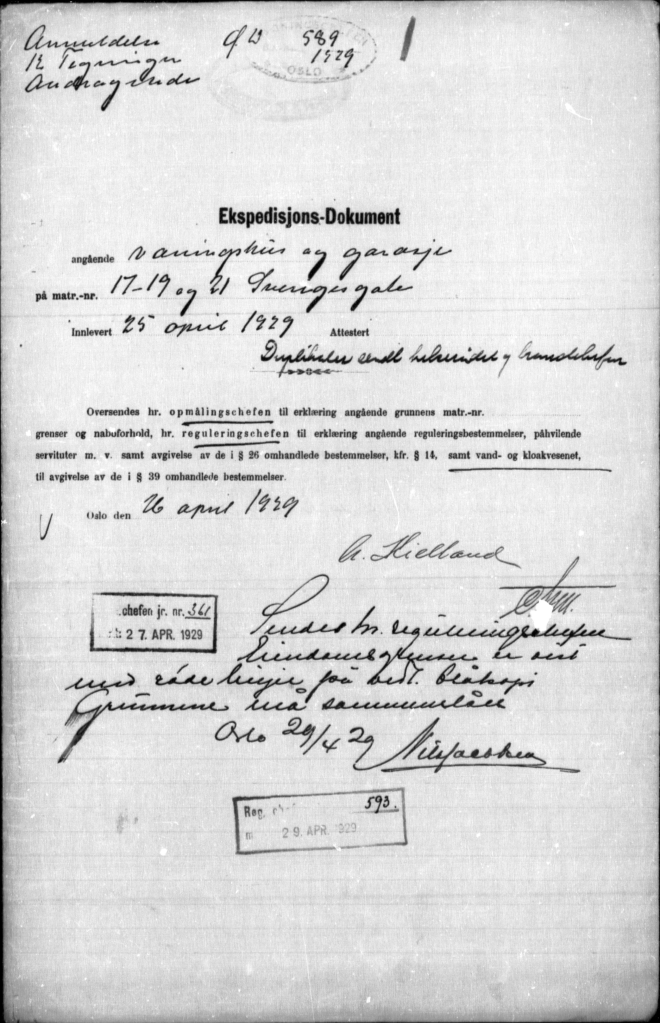 Anmeldelse
12 Tegninger
Andragende
Ø B 589
1929
OSLO
1
Ekspedisjons-Dokument
angående våningshus og garasje
på matr.-nr. 17-19 og 21 Sverigesgate
Innlevert 25 april 1929 Attestert
Duplikater sendt helserådet og brandchefen
Oversendes hr. opmålingschefen til erklæring angående grunnens matr.-nr.
grenser og naboforhold, hr. reguleringschefen til erklæring angående reguleringsbestemmelser, påhvilende
servituter m. v. samt avgivelse av de i § 26 omhandlede bestemmelser, kfr. § 14, samt vand- og kloakvesenet,
til avgivelse av de i § 39 omhandlede bestemmelser.
Oslo den 26 april 1929
A. Kielland
chefen jr. nr. 361
27. APR. 1929
Sendes hr. reguleringschefen
Eiendomsgrensen er vist
med røde linjer på vedl. blåkopi
Grunnene må sammenslåes
Oslo 29/4 29
Nils Jacobsen
Reg. 593.
29. APR. 1929